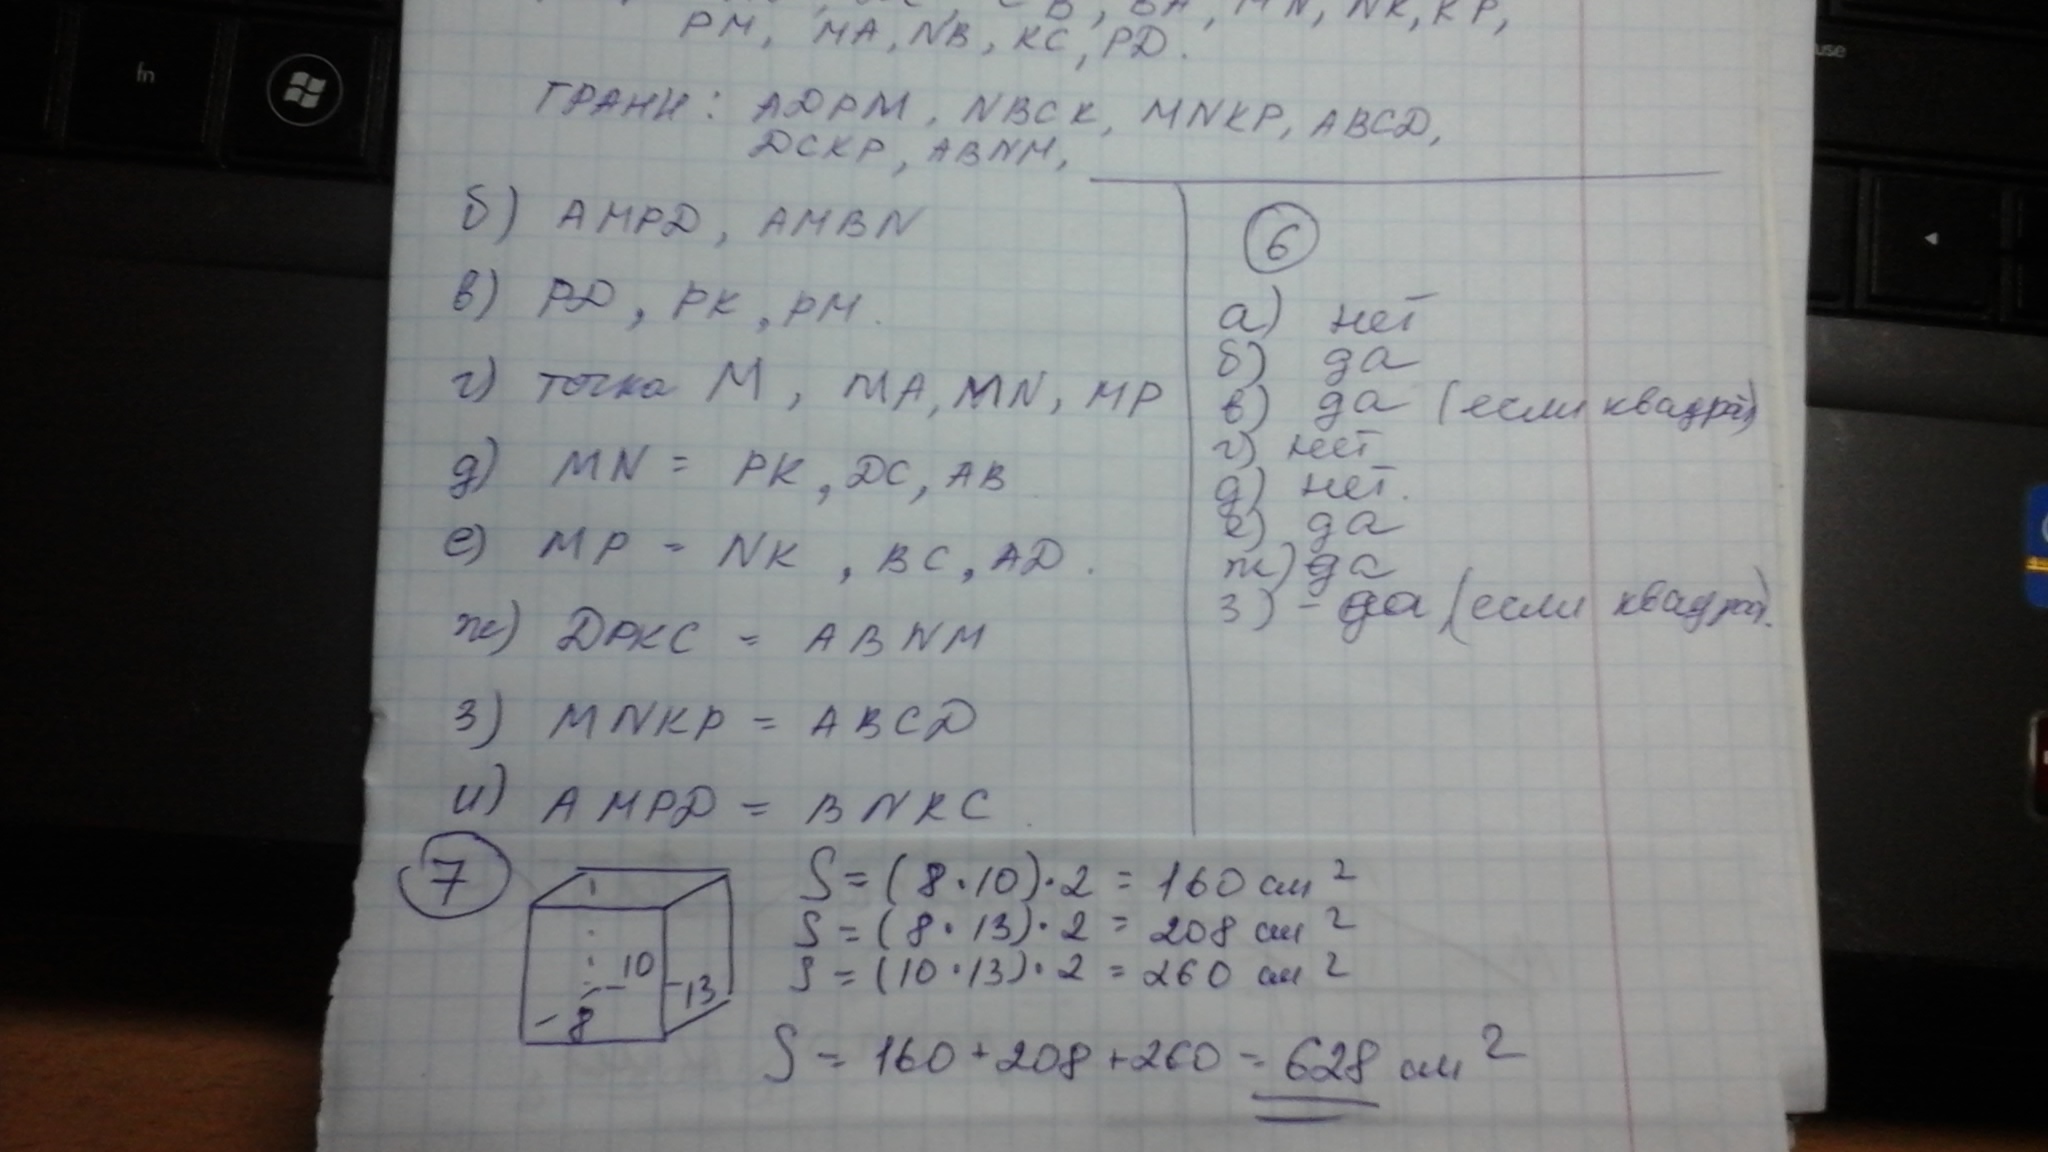 СВ, ВА, MN, NK, KP,
PM, MA, NB, KC, PD.
ГРАНИ: ADPM, NBCK, MNKP, ABCD,
DCKP, ABNM,
б) AMPD, AMBN
в) PD, PK, PM.
г) точка M, MA, MN, MP
д) MN = PK, DC, AB
е) MP = NK, BC, AD.
ж) DPKC = ABNM
з) MNKP = ABCD
и) AMPD = BNKC.
6
а) нет
б) да
в) да (если квадрат)
г) нет
д) нет.
е) да
ж) да
з) - да (если квадрат).
7
10
13
8
S = (8·10)·2 = 160 см²
S = (8·13)·2 = 208 см²
S = (10·13)·2 = 260 см²
S = 160 + 208 + 260 = 628 см²
fn
use